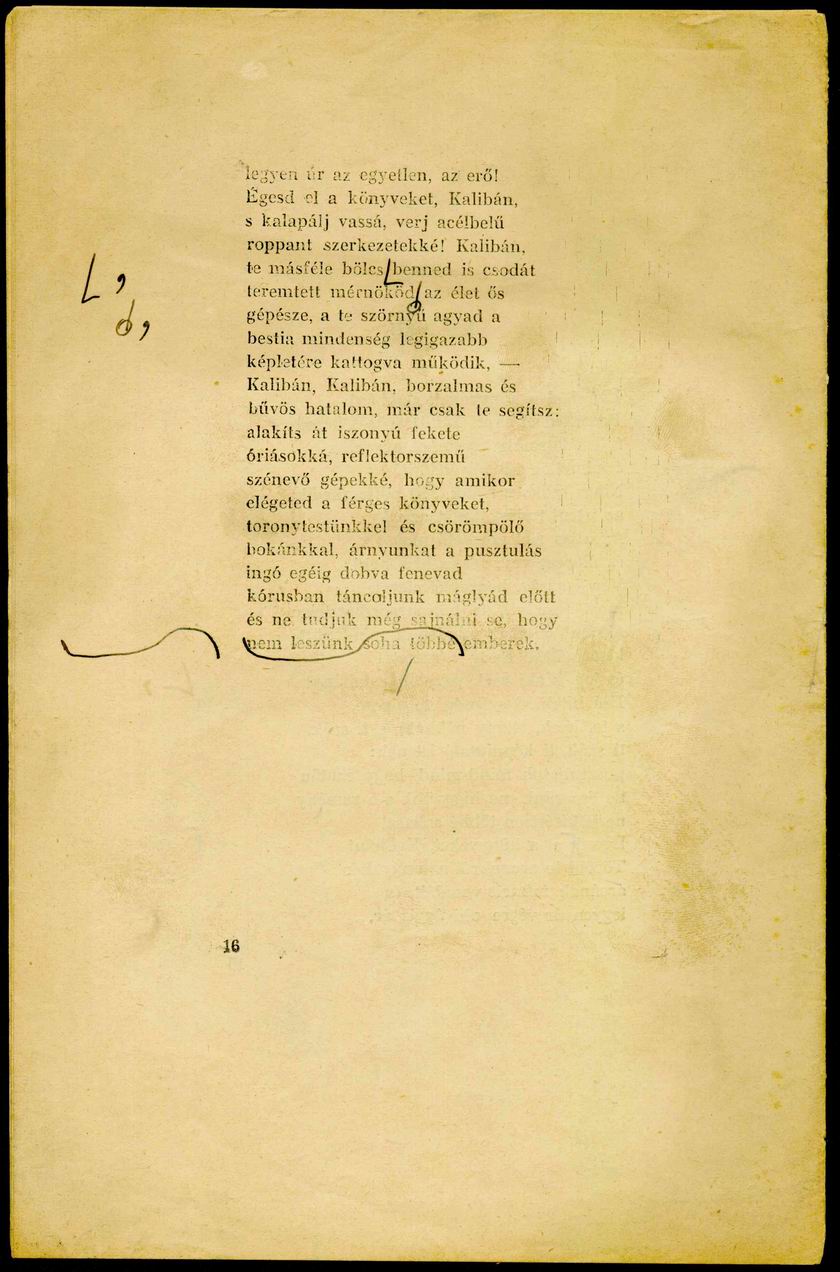 legyen úr az egyetlen, az erő!
Égesd el a könyveket, Kalibán,
s kalapálj vassá, verj acélbelű
roppant szerkezetekké! Kalibán,
te másféle bölcs benned is csodát
teremtett mérnököd az élet ős
gépésze, a te szörnyű agyad a
bestia mindenség legigazabb
képletére kattogva működik, —
Kalibán, Kalibán, borzalmas és
bűvös hatalom, már csak te segítsz:
alakíts át iszonyú fekete
óriásokká, reflektorszemű
szénevő gépekké, hogy amikor
elégeted a férges könyveket,
toronytestünkkel és csörömpölő
bokánkkal, árnyunkat a pusztulás
ingó egéig dobva fenevad
kórusban táncoljunk máglyád előtt
és ne tudjuk még sajnálni se, hogy
nem leszünk soha többé emberek.
16